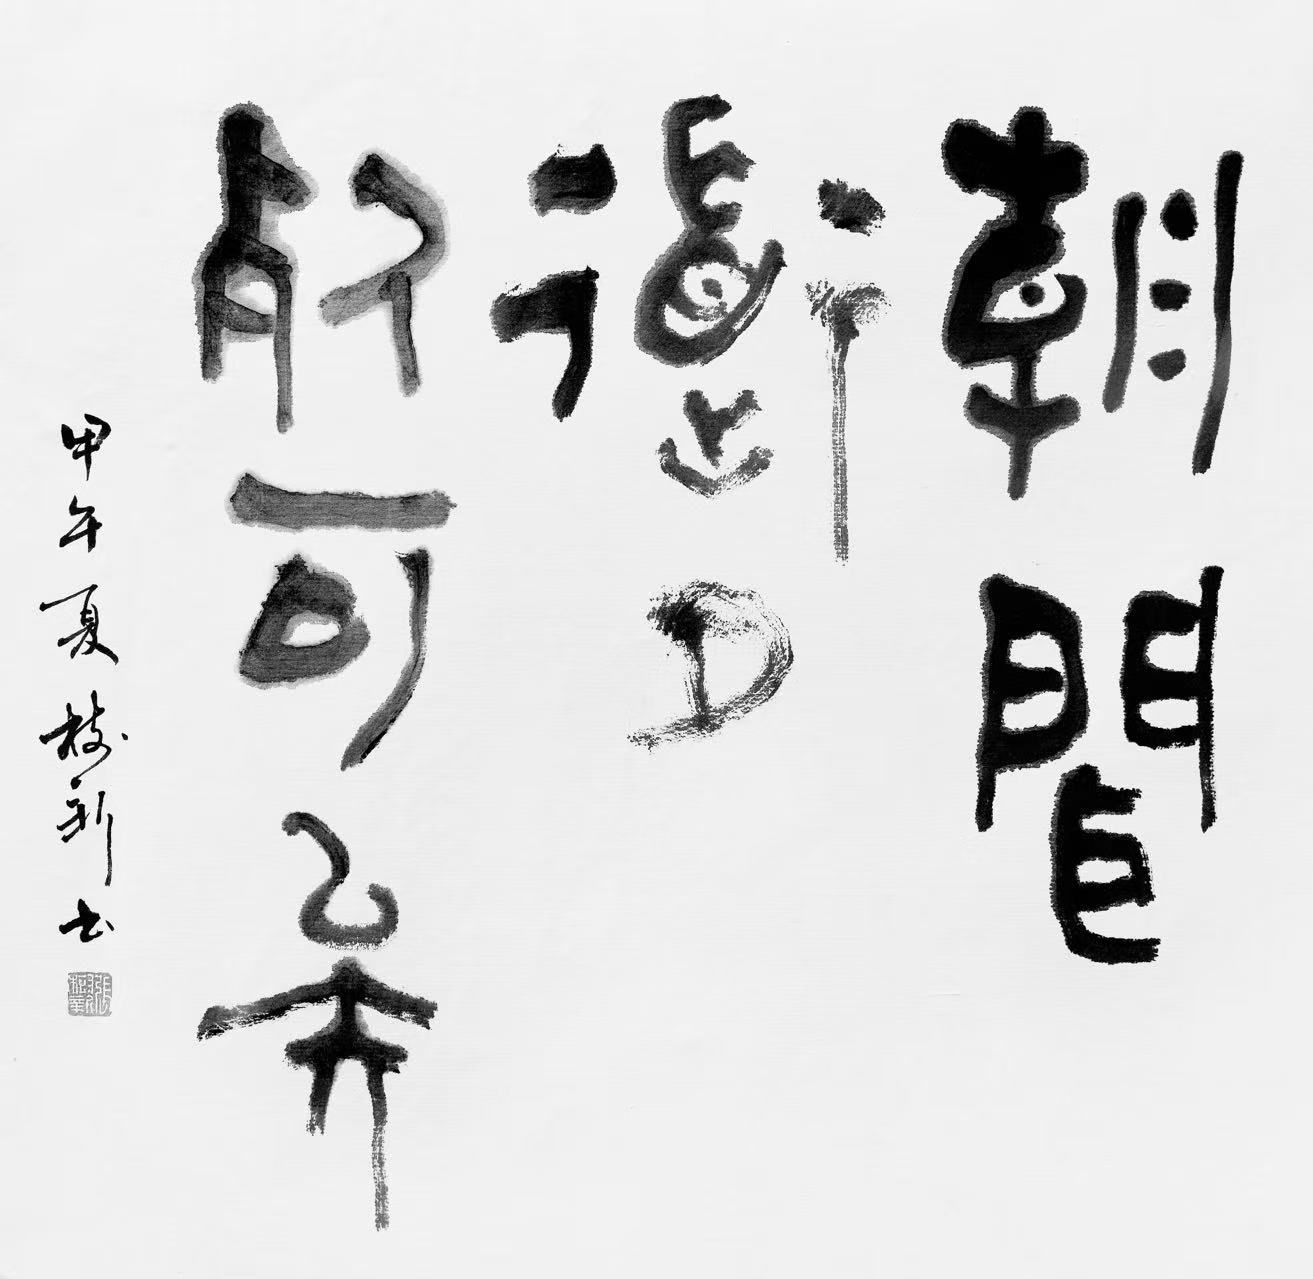 朝聞
道夕
死可矣
甲午夏枝新书